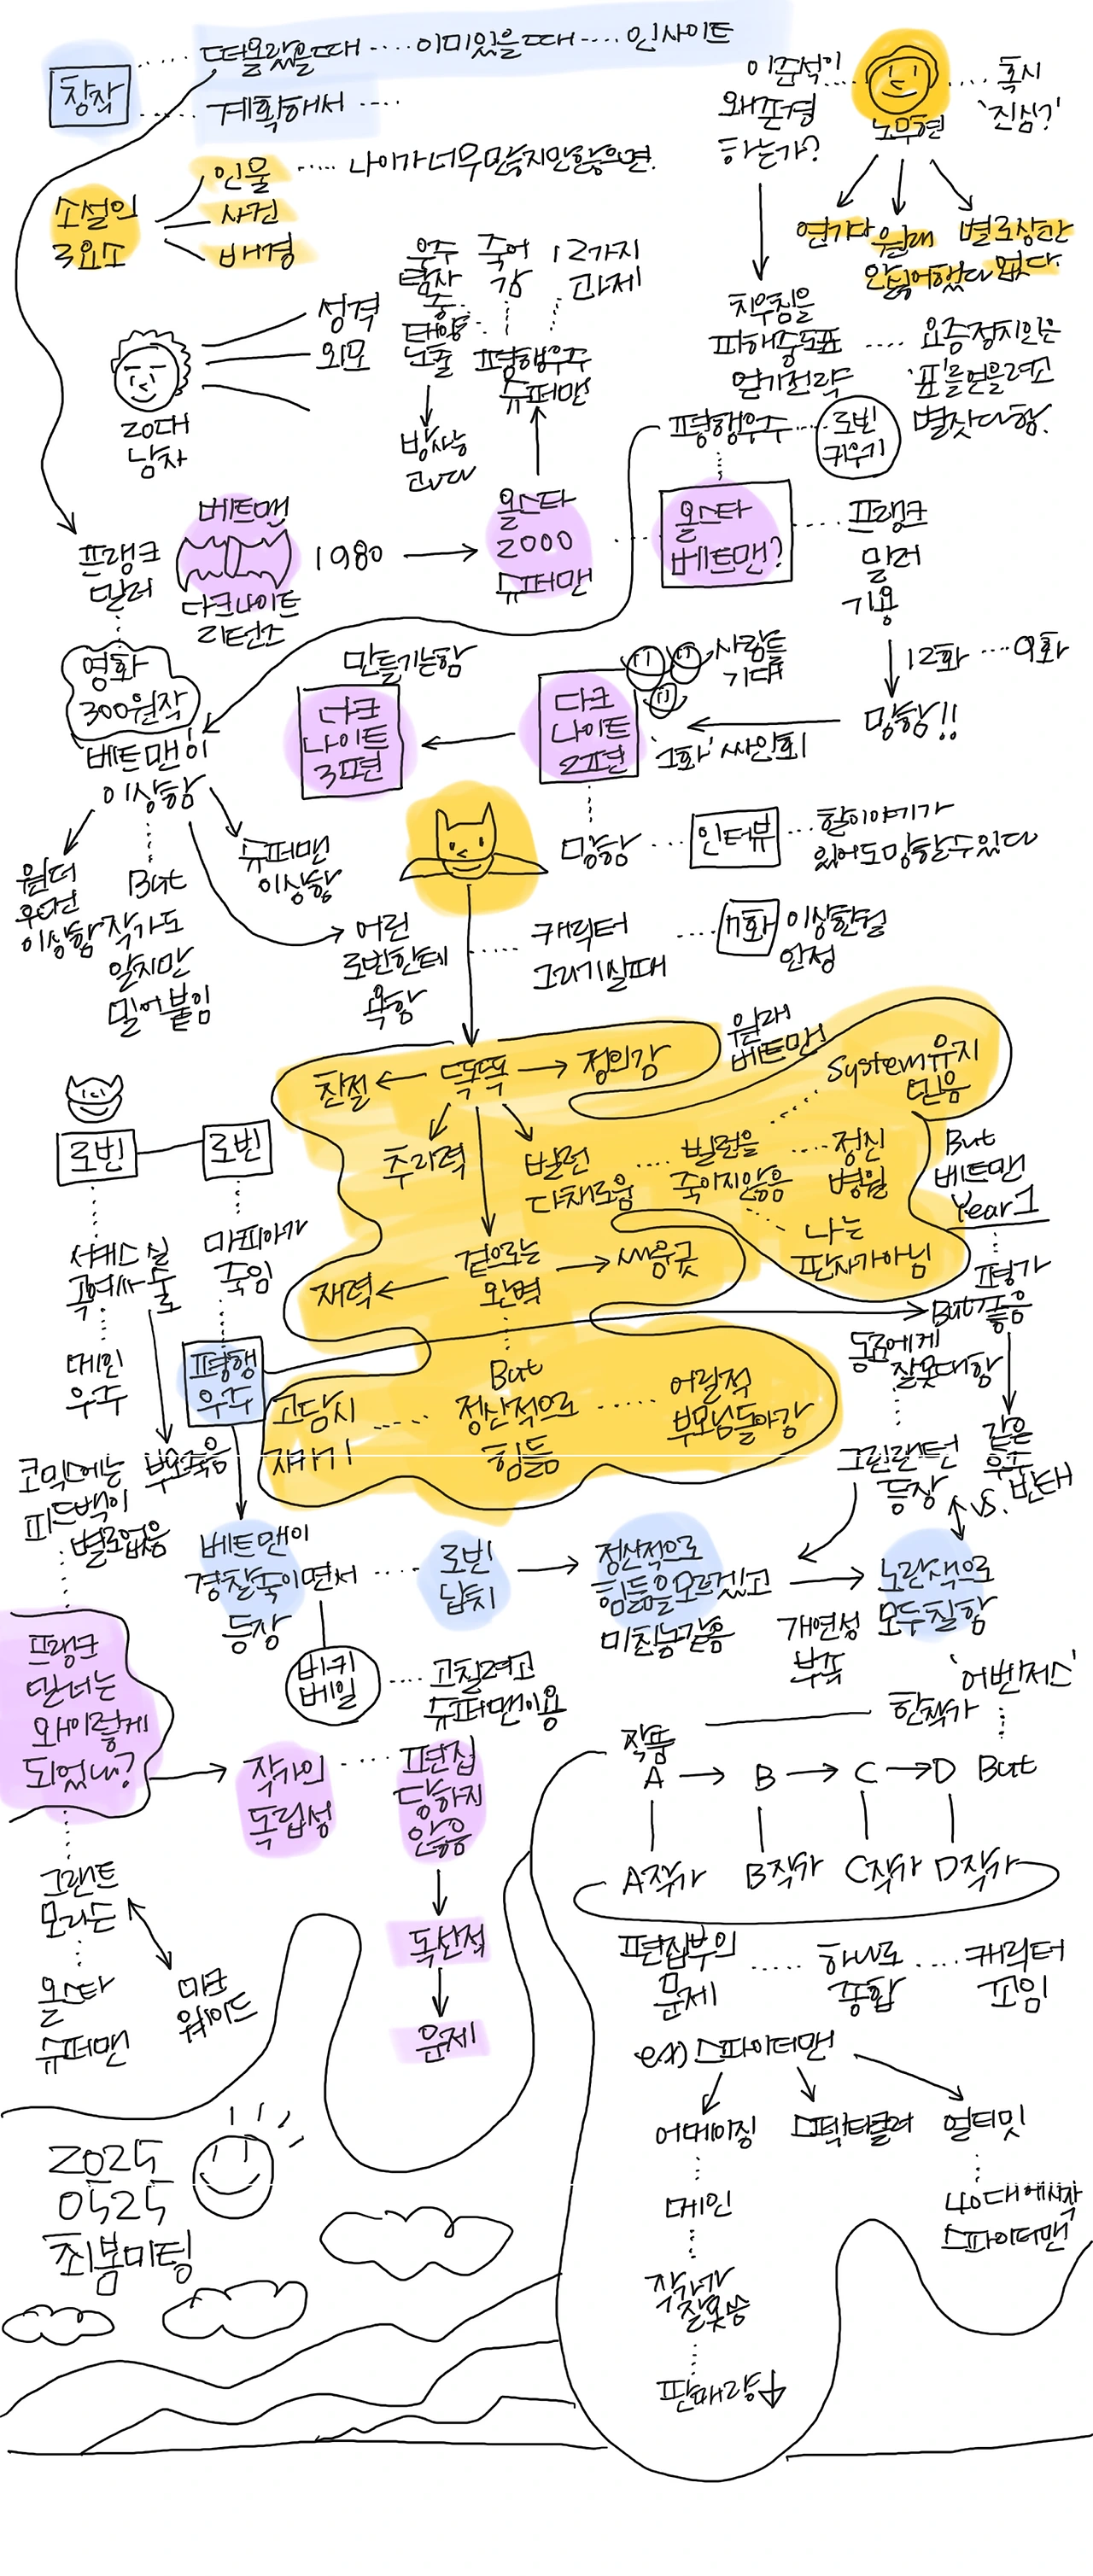 떠올랐을때 ···· 이미있을때 ···· 인사이트
창작
계획해서 ····
이준석이
왜존경
하는가?
노무현
혹시
'진심?'
연기다
원래
안친했다
별로상관
없다.
소설의
3요소
인물
사건
배경
나이가너무많지만않으면.
성격
외모
20대
남자
우주
탐사
중
태양
노출
방사능
과다
죽어
감
12가지
과제
평행우주
슈퍼맨
치우침을
피해중도표
얻기전략
요즘정치인은
'표'를얻을려고
별짓다함.
평행우주
로빈
키우기
프랭크
밀러
베트맨
다크나이트
리턴즈
1980
올스타
2000
슈퍼맨
올스타
베트맨?
프랭크
밀러
기용
12화 ···· 9화
망함!!
영화
300원작
만들기는함
다크
나이트
3편
다크
나이트
2편
사람들
기대
'1화' 싸인회
베트맨이
이상함
원더
우먼
이상함
But
작가도
알지만
밀어붙임
슈퍼맨
이상함
어린
로빈한테
욕함
망함
인터뷰
할이야기가
있어도망할수있다
캐릭터
그리기싫때
이상한걸
인정
원래
베트맨
친절
똑똑
정의감
추리력
빌런
다채로움
빌런을
죽이지않음
정신
병원
System유지
믿음
나는
판사가아님
겉으로는
완벽
재력
But
정신적으로
힘듦
어릴적
부모님돌아감
고담시
지키기
But
베트맨
Year 1
평가
But좋음
로빈
로빈
서커스
곡예사
메인
우주
부모죽음
마피아가
죽임
평행
우주
동료에게
잘못대함
그린랜턴
등장
같은
우주
VS.
반대
코믹스에는
피드백이
별로없음
베트맨이
경찰죽이면서
등장
로빈
납치
정신적으로
힘듦을모르겠고
미친놈같음
노란색으로
모두칠함
개연성
부족
비키
베일
고칠려고
슈퍼맨이용
프랭크
밀러는
왜이렇게
되었나?
작가의
독립성
편집
당하지
않음
독선적
문제
그랜트
모리슨
올스타
슈퍼맨
마크
웨이드
'어벤져스'
한작가
작품
A
B
C
D
But
A작가
B작가
C작가
D작가
편집부의
문제
하나로
종합
캐릭터
꼬임
ex) 스파이더맨
어메이징
스펙타큘러
얼티밋
메인
작가가
잘못씀
판매량↓
40대에시작
스파이더맨
2025
0525
최봄미팅